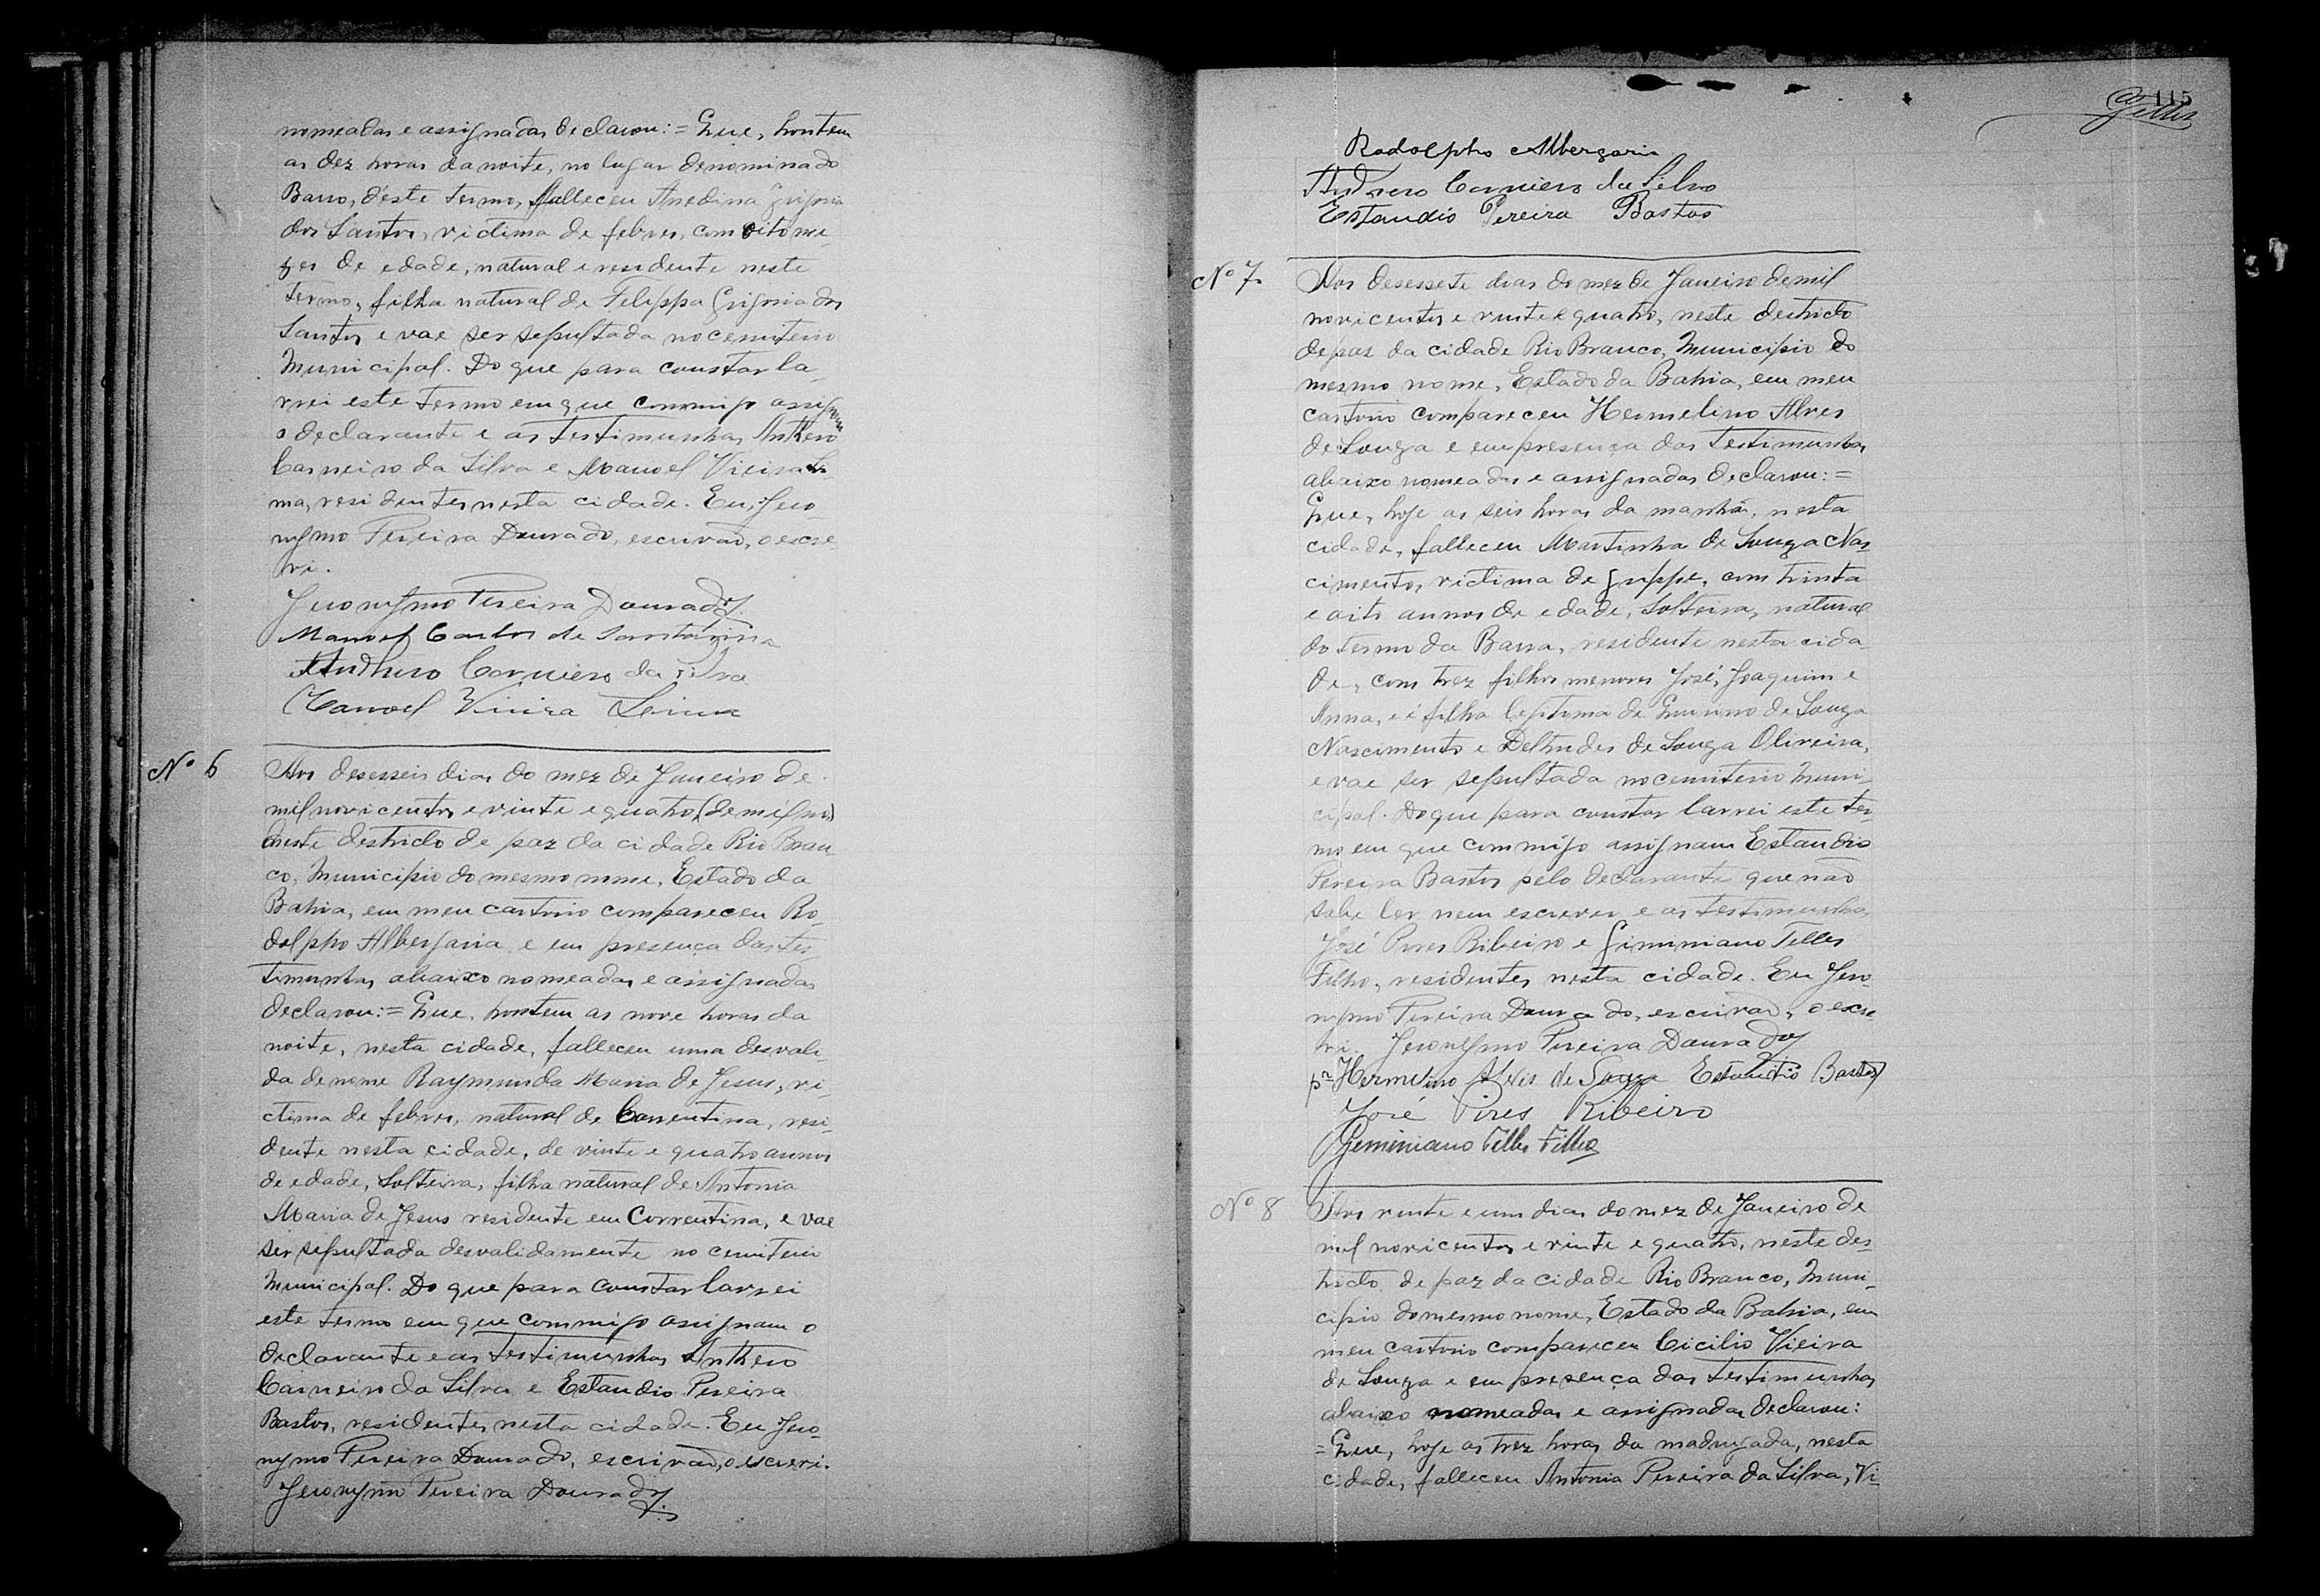 nomeadas e assignadas declarou:= Que, hontem
as dez horas da noite, no lugar denominado
Barro, d'este termo, falleceu Anedina Grigoria
dos Santos, victima de febres, com oito me-
zes de edade, natural e residente neste
termo, filha natural de Felippa Grigoria dos
Santos e vae ser sepultada no cemiterio
Municipal. Do que para constar la-
vrei este termo em que commigo assignam
o declarante e as testimunhas Anthero
Carneiro da Silva e Manoel Vieira Li-
ma, residentes nesta cidade. Eu, Jero-
nymo Pereira Dourado, escrivão, o escre-
vi.
Jeronymo Pereira Dourado
Manoel Carlos de Sant'Anna
Anthero Carneiro da Silva
Manoel Vieira Lima
Nº 6
Aos desesseis dias do mez de Janeiro de
mil novicentos e vinte e quatro, (de mil no)
neste destricto de paz da cidade Rio Bran-
co, Municipio do mesmo nome, Estado da
Bahia, em meu cartorio compareceu Ro-
dolpho Albergaria e em presença das tes-
timunhas abaixo nomeadas e assignadas
declarou:= Que, hontem as nove horas da
noite, nesta cidade, falleceu uma desvali-
da de nome Raymunda Maria de Jesus, vi-
ctima de febres, natural de Correntina, resi-
dente nesta cidade, de vinte e quatro annos
de edade, solteira, filha natural de Antonia
Maria de Jesus residente em Correntina, e vae
ser sepultada desvalidamente no cemiterio
Municipal. Do que para constar lavrei
este termo em que commigo assignam o
declarante e as testimunhas Anthero
Carneiro da Silva e Estandio Pereira
Bastos, residentes nesta cidade. Eu Jero-
nymo Pereira Dourado, escrivão, o escrevi.
Jeronymo Pereira Dourado
115
Telles
Rodolpho Albergaria
Anthero Carneiro da Silva
Estandio Pereira Bastos
Nº 7
Aos desessete dias do mez de Janeiro de mil
novicentos e vinte e quatro, neste destricto
de paz da cidade Rio Branco, Municipio do
mesmo nome, Estado da Bahia, em meu
cartorio compareceu Hermelino Alves
de Souza e em presença das testimunhas
abaixo nomeadas e assignadas declarou:=
Que, hoje as seis horas da manhã, nesta
cidade, falleceu Martinha de Souza Nas-
cimento, victima de grippe, com trinta
e oito annos de edade, solteira, natural
do termo da Barra, residente nesta cida-
de, com trez filhos menores José, Joaquim e
Anna, e é filha legitima de de Souza
Nascimento e Deltrudes de Souza Oliveira,
e vae ser sepultada no cemiterio Muni-
cipal. Do que para constar lavrei este ter-
mo em que commigo assignam Estandio
Pereira Bastos pelo declarante que não
sabe ler nem escrever e as testimunhas
José Pires Ribeiro e Giminiano Telles
Filho, residentes nesta cidade. Eu Jero-
nymo Pereira Dourado, escrivão, o escre-
vi. Jeronymo Pereira Dourado
pr Hermelino Alves de Souza Estandio Bastos
José Pires Ribeiro
Geminiano Telles Filho
Nº 8
Aos vinte e um dias do mez de Janeiro de
mil novicentos e vinte e quatro, neste des-
tricto de paz da cidade Rio Branco, Muni-
cipio do mesmo nome, Estado da Bahia, em
meu cartorio compareceu Cicilio Vieira
de Souza e em presença das testimunhas
abaixo nomeadas e assignadas declarou:
= Que, hoje as trez horas da madrugada, nesta
cidade, falleceu Antonia Pereira da Silva, vi-